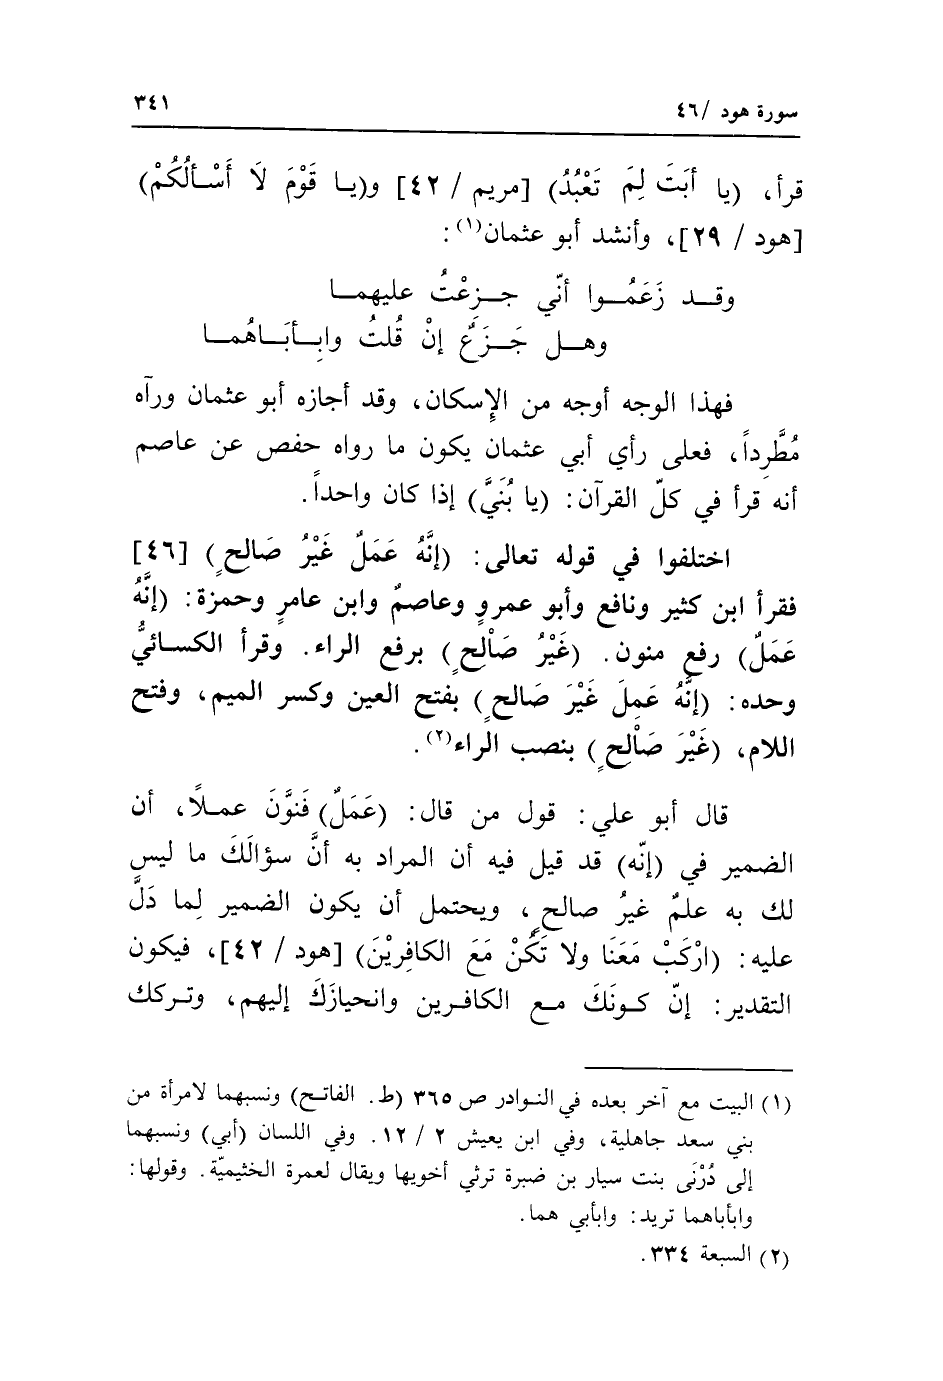 سورة هود /٤٦ ٣٤١
قرأ، (يا أبَتَ لِمَ تَعْبُدُ) [مريم / ٤٢] و(يـا قَوْمَ لَا أَسْـألُكُمْ)
[هود / ٢٩]، وأنشد أبو عثمان(١) :
وقـــد زَعَمُـــوا أنّي جـــزِعْتُ عليهمـــا
وهـــل جَـــزَعٌ إنْ قُلتُ وابِـــأبَـــاهُمـــا
فهذا الوجه أوجه من الإِسكان، وقد أجازه أبو عثمان ورآه
مُطَّرِداً، فعلى رأي أبي عثمان يكون ما رواه حفص عن عاصم
أنه قرأ في كلّ القرآن: (يا بُنَيَّ) إذا كان واحداً.
اختلفوا في قوله تعالى: (إنَّهُ عَمَلٌ غَيْرُ صَالحٍ) [٤٦]
فقرأ ابن كثير ونافع وأبو عمروٍ وعاصمٌ وابن عامرٍ وحمزة: (إنَّهُ
عَمَلٌ) رفع منون. (غَيْرُ صَاْلحٍ) برفع الراء. وقرأ الكسـائيُّ
وحده: (إنَّهُ عَمِلَ غَيْرَ صَالحٍ) بفتح العين وكسر الميم، وفتح
اللام، (غَيْرَ صَاْلحٍ) بنصب الراء(٢).
قال أبو علي: قول من قال: (عَمَلٌ) فَنوَّنَ عمـلًا، أن
الضمير في (إنّه) قد قيل فيه أن المراد به أنَّ سؤالَكَ ما ليس
لك به علمٌ غيرُ صالحٍ، ويحتمل أن يكون الضمير لِما دَلَّ
عليه: (ارْكَبْ مَعَنَا ولا تَكُنْ مَعَ الكافِرِيْنَ) [هود / ٤٢]، فيكون
التقدير: إنّ كـونَكَ مـع الكافـرين وانحيازَكَ إليهم، وتـركك
(١) البيت مع آخر بعده في النـوادر ص ٣٦٥ (ط. الفاتـح) ونسبهما لامرأة من
بني سعد جاهلية، وفي ابن يعيش ٢ / ١٢. وفي اللسان (أبي) ونسبهما
إلى دُرْنَى بنت سيار بن ضبرة ترثي أخويها ويقال لعمرة الخثيميّة. وقولها:
وابأباهما تريد: وابأبي هما.
(٢) السبعة ٣٣٤.